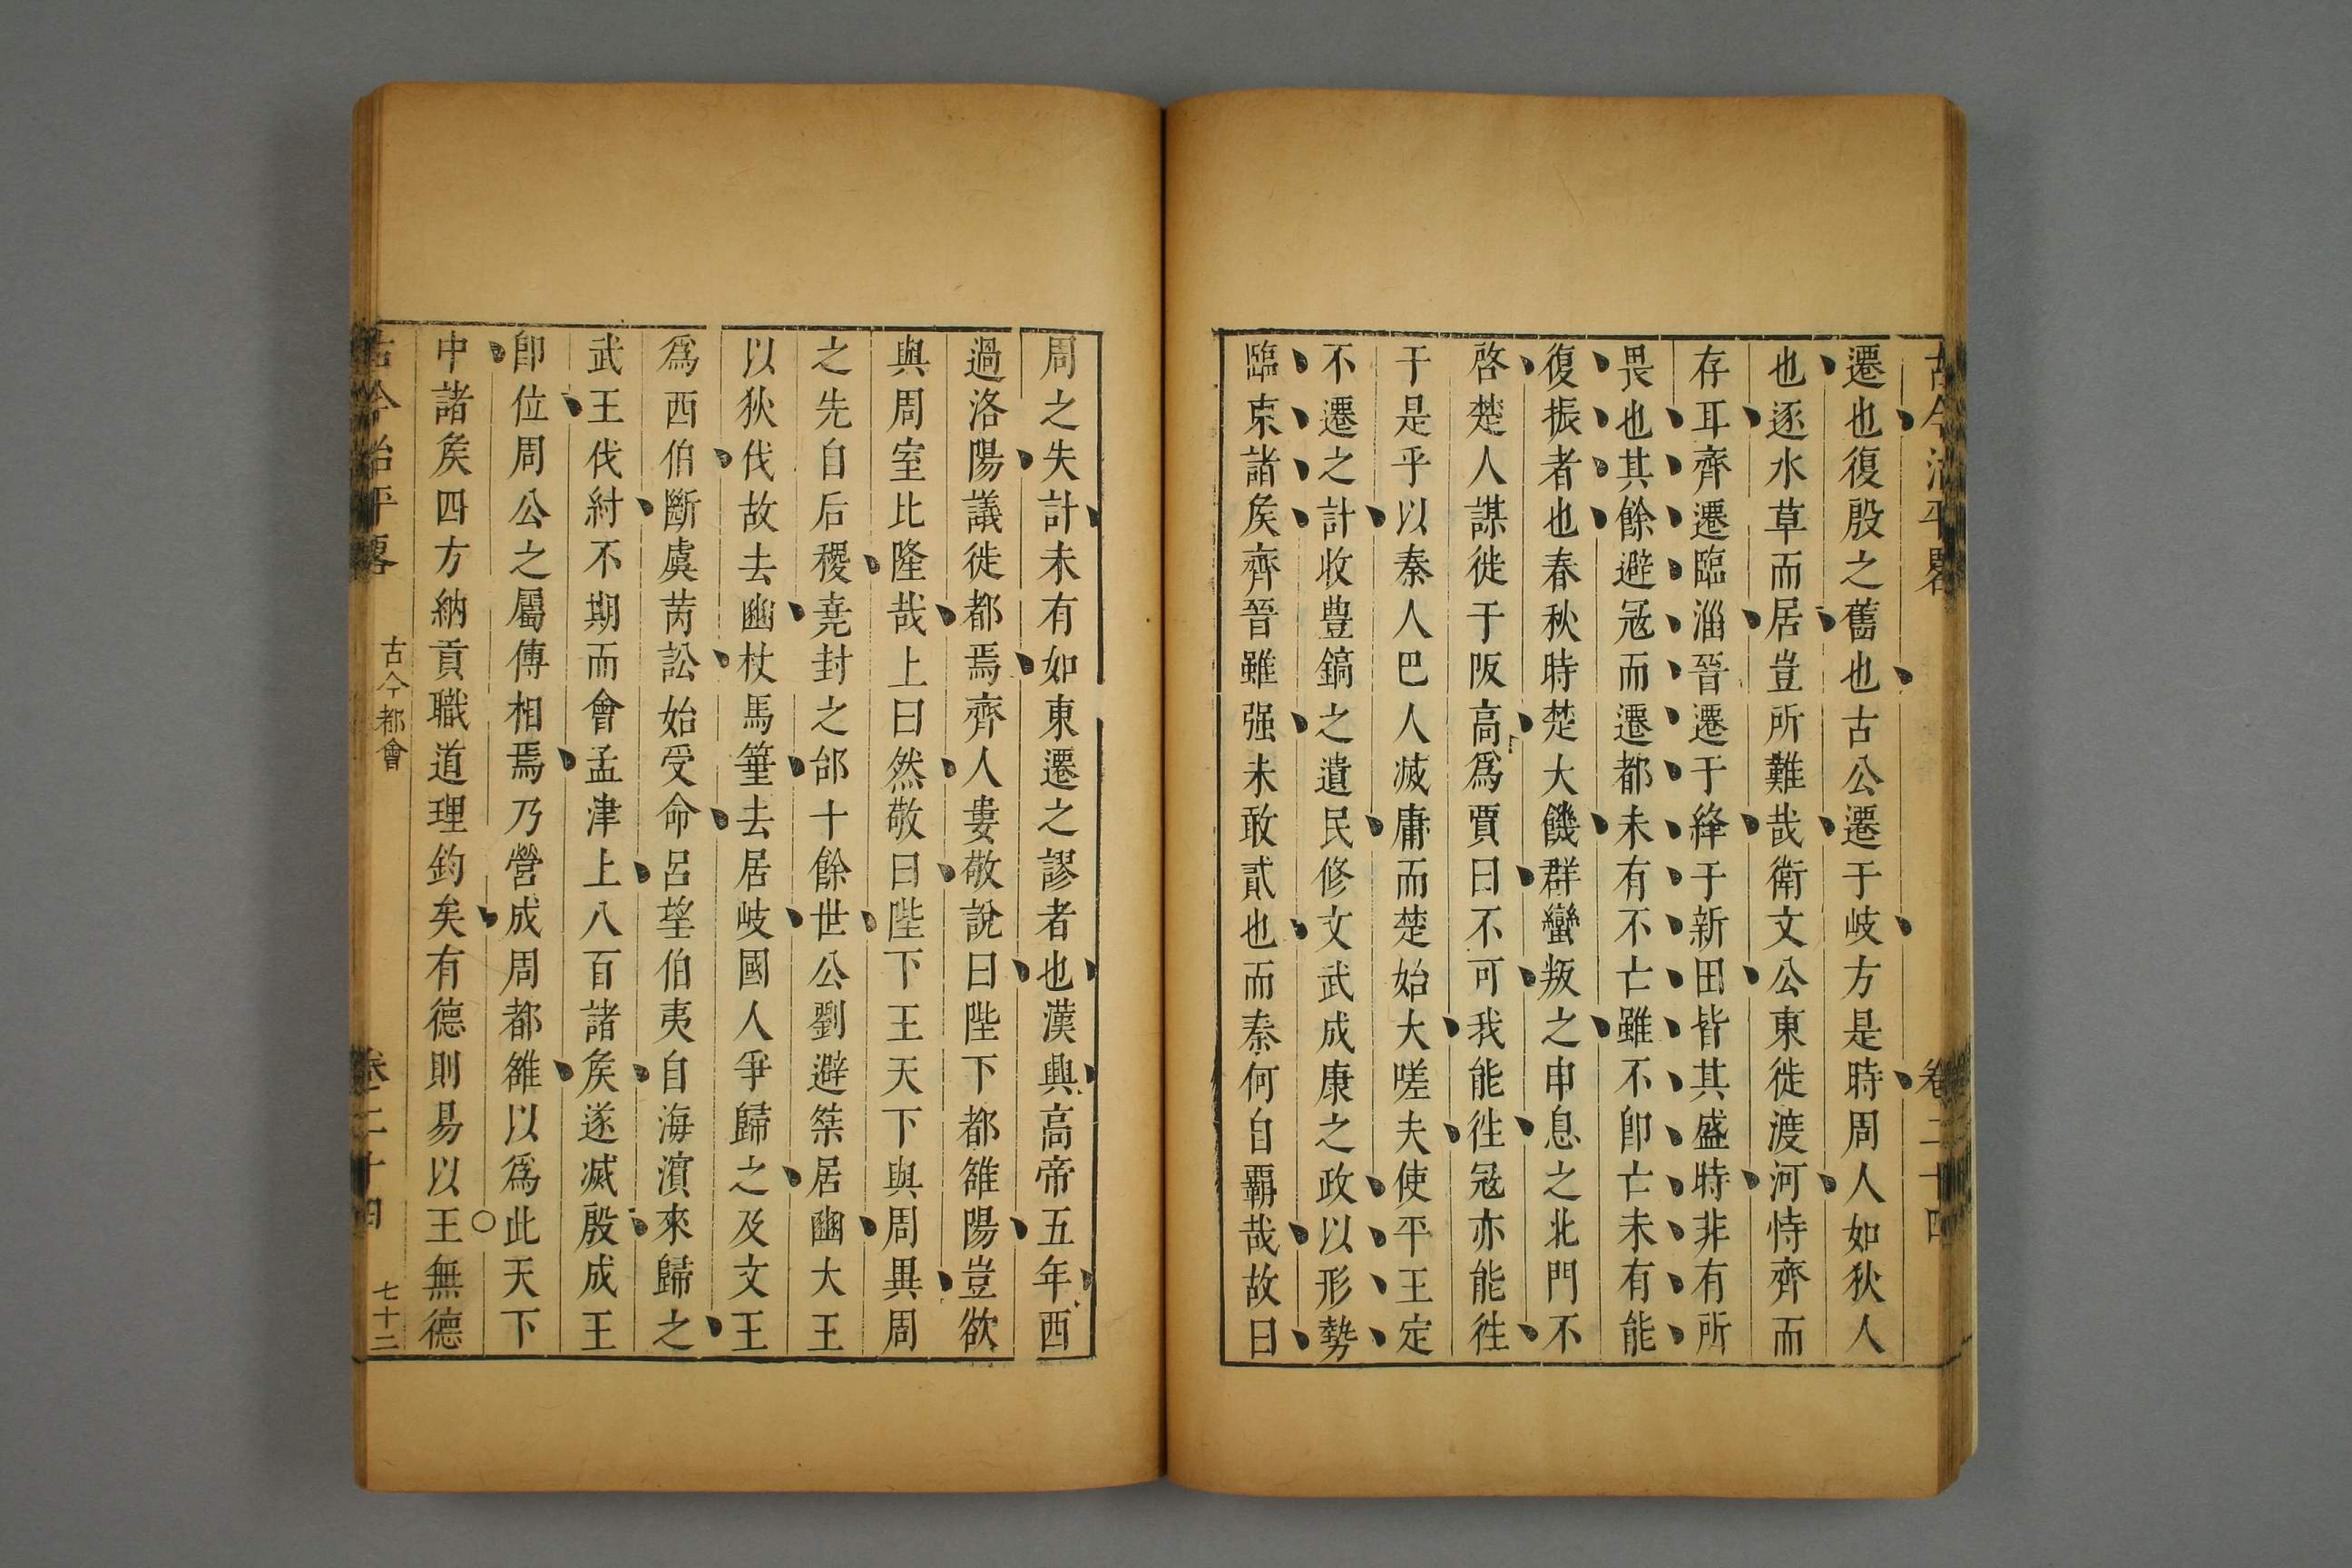 古今治平畧 卷二十四
遷也復殷之舊也古公遷于岐方是時周人如狄人
也逐水草而居豈所難哉衛文公東徙渡河恃齊而
存耳齊遷臨淄晉遷于絳于新田皆其盛時非有所
畏也其餘避冦而遷都未有不亡雖不卽亡未有能
復振者也春秋時楚大饑群蠻叛之申息之北門不
啓楚人謀徙于阪高爲賈曰不可我能徃冦亦能徃
于是乎以秦人巴人滅庸而楚始大嗟夫使平王定
不遷之計收豊鎬之遺民修文武成康之政以形勢
臨東諸矦齊晉雖强未敢貳也而秦何自霸哉故曰
周之失計未有如東遷之謬者也漢興高帝五年西
過洛陽議徙都焉齊人婁敬說曰陛下都雒陽豈欲
與周室比隆哉上曰然敬曰陛下王天下與周異周
之先自后稷堯封之邰十餘世公劉避桀居豳大王
以狄伐故去豳杖馬箠去居岐國人爭歸之及文王
爲西伯斷虞芮訟始受命呂望伯夷自海濵來歸之
武王伐紂不期而會孟津上八百諸矦遂滅殷成王
卽位周公之屬傅相焉乃營成周都雒以爲此天下
中諸矦四方納貢職道理鈞矣有德則易以王無德
古今治平畧 古今都會 卷二十四 七十二